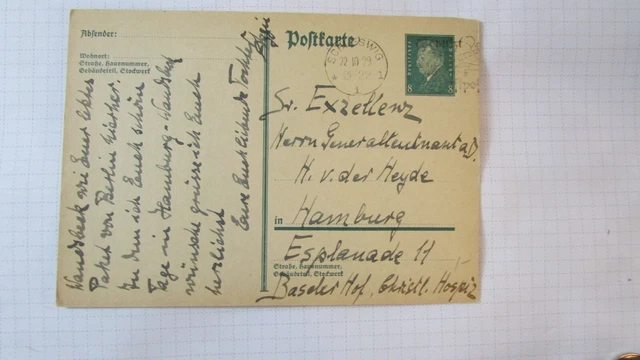 Absender:
Wohnort:
Straße, Hausnummer,
Gebäudeteil, Stockwerk
Postkarte
22.10.29
8 8
Sr. Exzellenz
Herrn Generalleutnant a.D.
H. v. der Heyde
in Hamburg
Esplanade 11
Straße, Hausnummer,
Gebäudeteil, Stockwerk
Baseler Hof, Christl. Hospiz
Wandsbek wie Euer
Paket von Berlin hierher.
In dem ich Euch schöne
Tage in Hamburg-Wandsbek
wünsche grüsse ich Euch
herzlichst
Eure Euch liebende Tochter